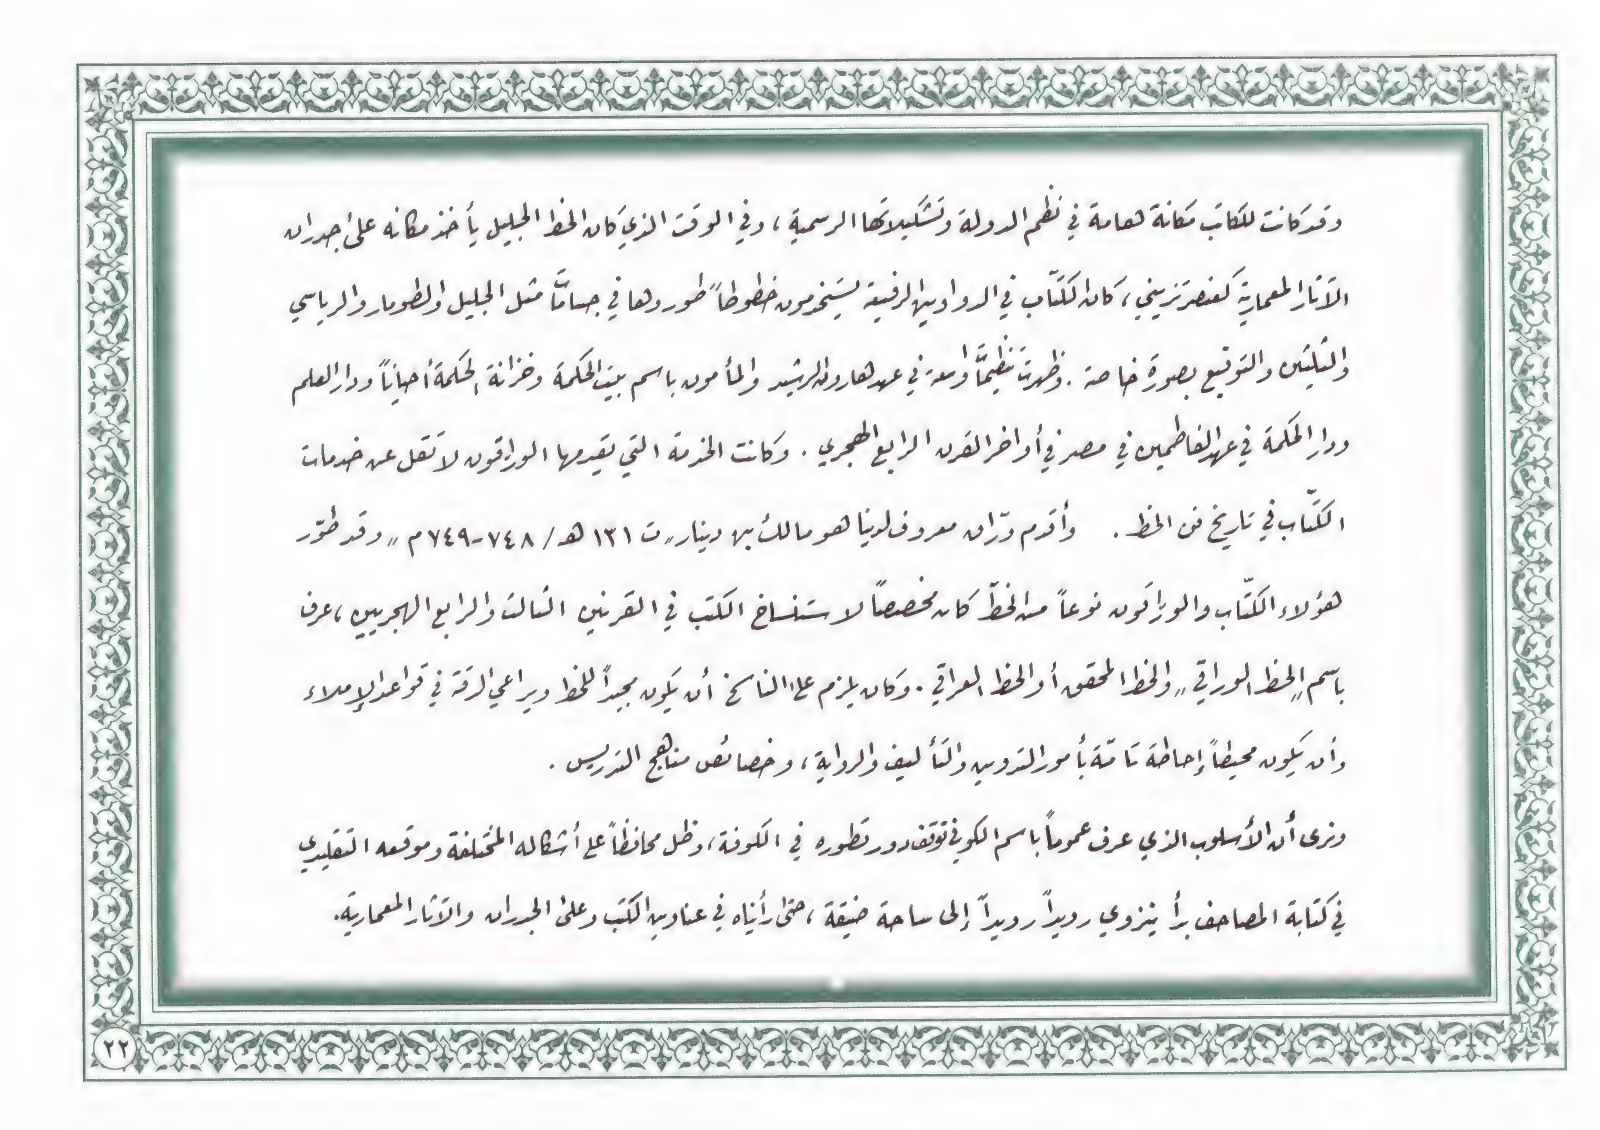 وقد كانت للكاتب مكانة هامة في نظم الدولة وتشكيلاتها الرسمية ، وفي الوقت الذي كان الخط الجليل يأخذ مكانه على جدران
الآثار المعمارية كعنصر تزييني ، كان الكتّاب في الدواوين الرفيعة يستخدمون خطوطاً طوروها في مثل الجليل والطومار والرياسي
والثلثين والتوقيع بصورة خاصة . وظهرت واسعة في عهد هارون الرشيد والمأمون باسم بيت الحكمة وخزانة الحكمة أحياناً ودار العلم
ودار الحكمة في عهد الفاطميين في مصر في أواخر القرن الرابع الهجري . وكانت الخدمة التي يقدمها الوراقون لا تقل عن خدمات
الكتّاب في تاريخ فن الخط . وأقدم ورّاق معروف لدينا هو مالك بن دينار „ ت ١٣١ هـ / ٧٤٨-٧٤٩ م „ وقد طوّر
هؤلاء الكتّاب والوراقون نوعاً من الخط كان مخصصاً لاستنساخ الكتب في القرنين الثالث والرابع الهجريين ، عرف
باسم „ الخط الوراقي „ والخط المحقق أو الخط العراقي . وكان يلزم على الناسخ أن يكون مجيداً للخط ويراعي الدقة في قواعد الإملاء
وأن يكون محيطاً إحاطة تامّة بأمور التدوين والتأليف والرواية ، وخصائص مناهج التدريس .
ونرى أن الأسلوب الذي عرف عموماً باسم الكوفي توقف دور تطوره في الكوفة ، وظل محافظاً على أشكاله المختلفة وموقعه التقليدي
في كتابة المصاحف بدأ ينزوي رويداً رويداً إلى ساحة ضيقة ، حتى رأيناه في عناوين الكتب وعلى الجدران والآثار المعمارية .
٢٢